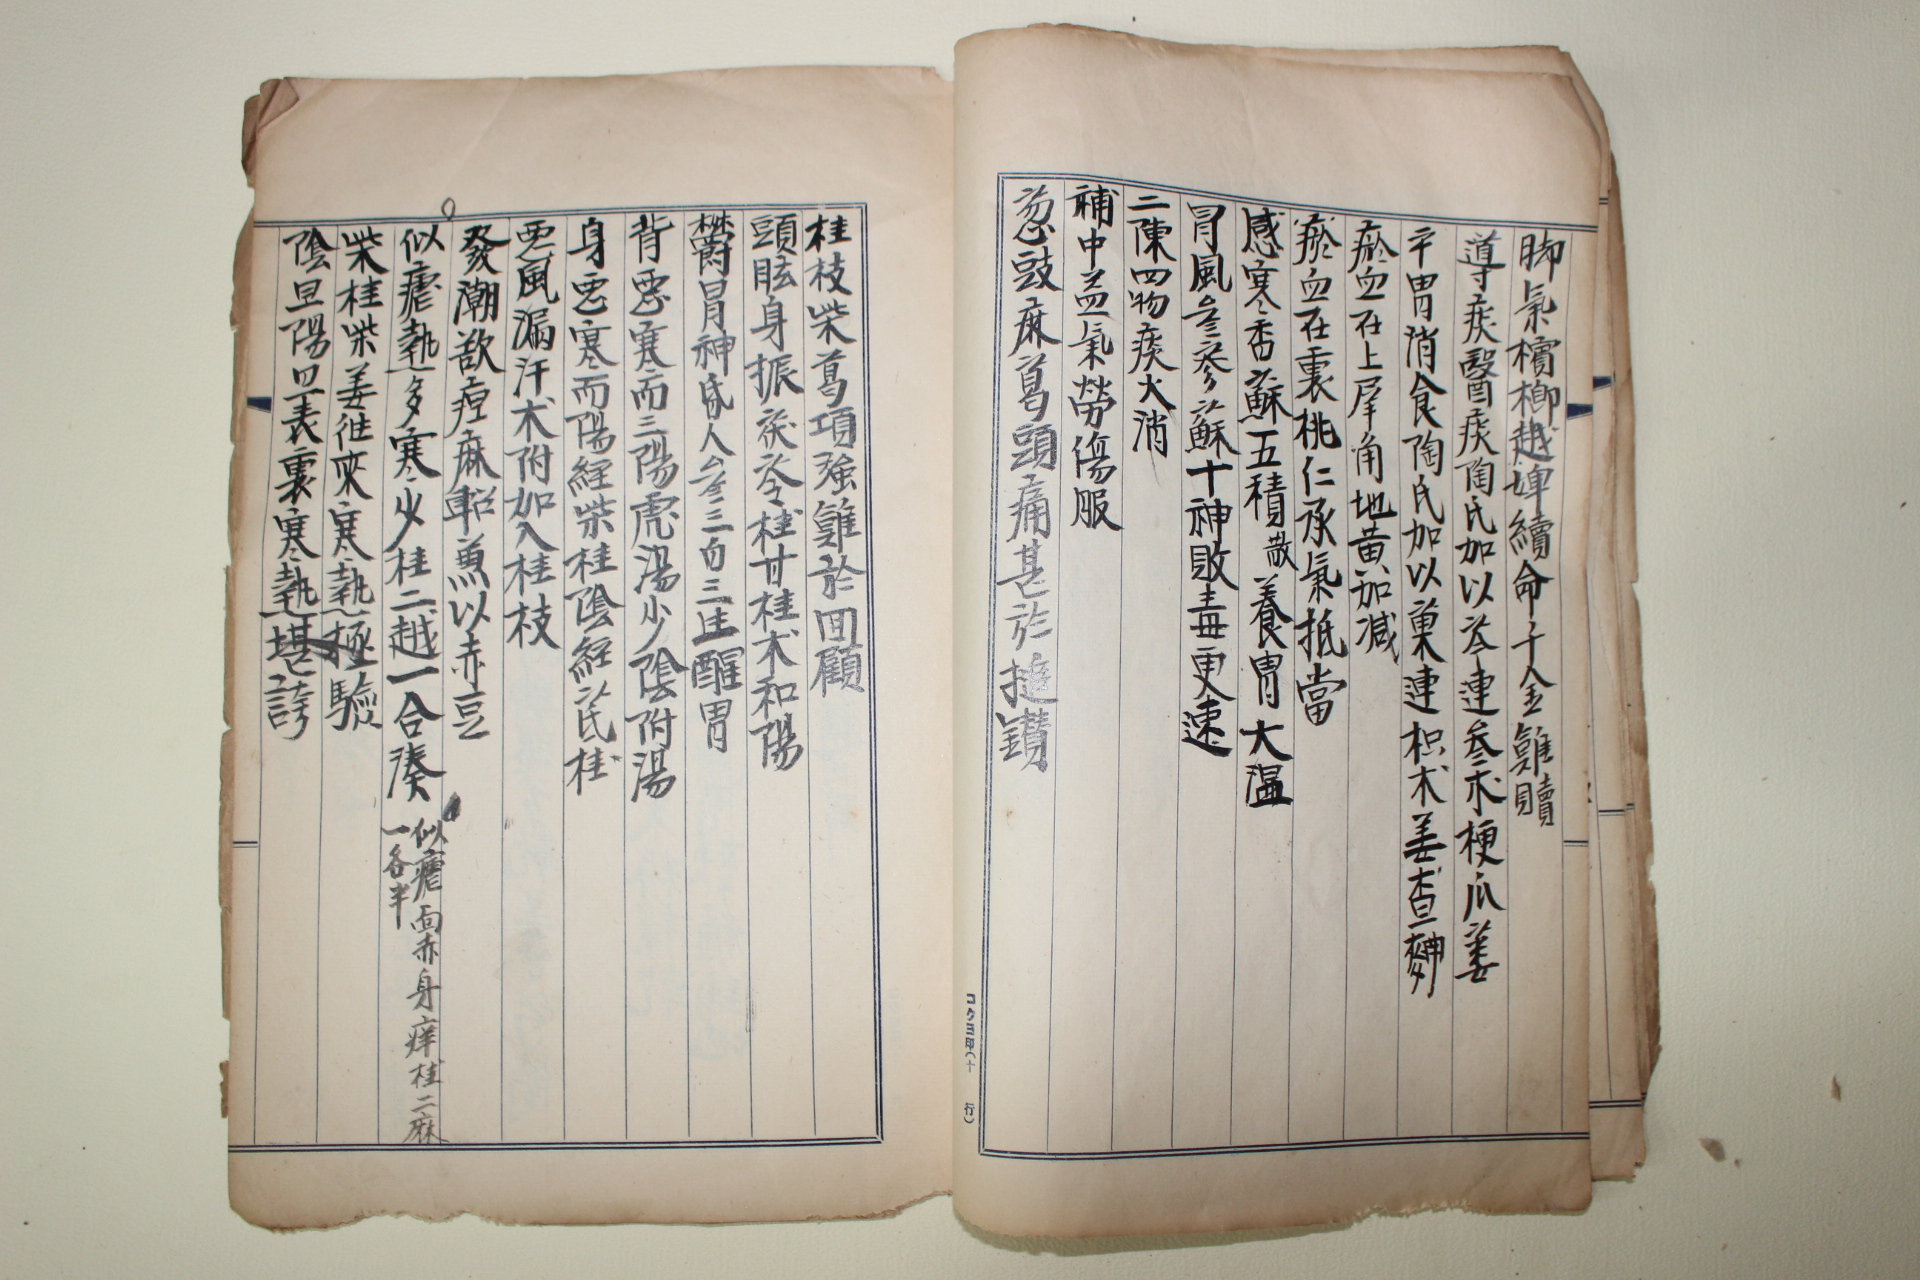 脚氣檳榔越婢續命千金雖贖
導痰醫痰陶氏加以芩連參朮梗瓜姜
平胃消食陶氏加以菓連枳朮姜查麯
瘀血在上犀角地黄加减
瘀血在裏桃仁承氣抵當
感寒香蘇五積散養胃大温
冒風參蘇十神敗毒更速
二陳四物痰火消
補中益氣勞傷服
葱豉麻葛頭痛甚於搥鑽
桂枝柴葛項強難於回顧
頭眩身振茯苓桂甘桂朮和陽
欝冒神昏人參三白三生醒胃
背惡寒而三陽虎湯少陰附湯
身惡寒而陽經柴桂陰經芪桂
惡風漏汗朮附加入桂枝
發潮欲痙麻軺兼以赤豆
似瘧熱多寒少桂二越一合湊
似瘧面赤身痒桂二麻
一各半
柴桂柴姜往來寒熱極驗
陰旦陽旦表裏寒熱堪誇
コクヨ印(十 行)